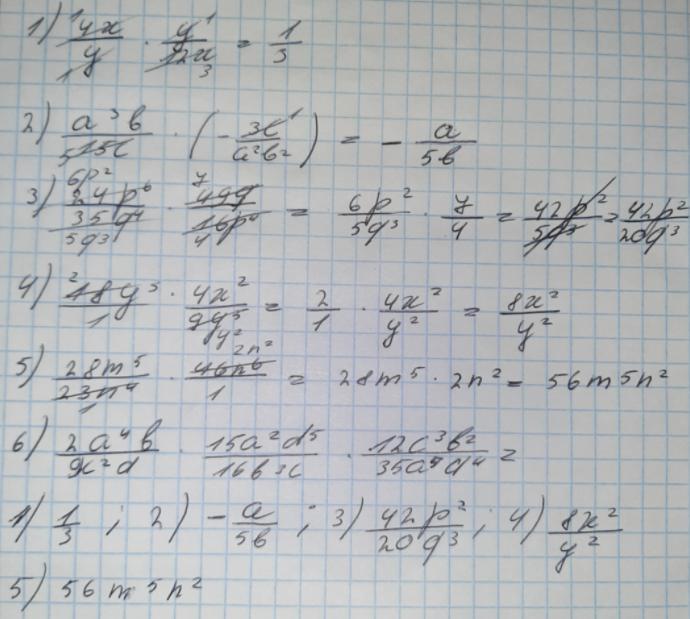 1) 4x/y · y/12x = 1/3
2) a³b/515c · (- 3c/a²b²) = - a/5b
3) 24p⁶/35q⁴ · 49q/16p⁴ = 6p²/5q³ · 7/4 = 42p²/5q³ = 42p²/20q³
4) 18y³/1 · 4x²/9y⁵ = 2/1 · 4x²/y² = 8x²/y²
5) 28m⁵/23n⁴ · 46n⁶/1 = 28m⁵ · 2n² = 56m⁵n²
6) 2a⁴b/9c²d · 15a²d⁵/16b³c · 12c³b²/35a⁵d⁴ =
1) 1/3 ; 2) - a/5b ; 3) 42p²/20q³ ; 4) 8x²/y²
5) 56m⁵n²